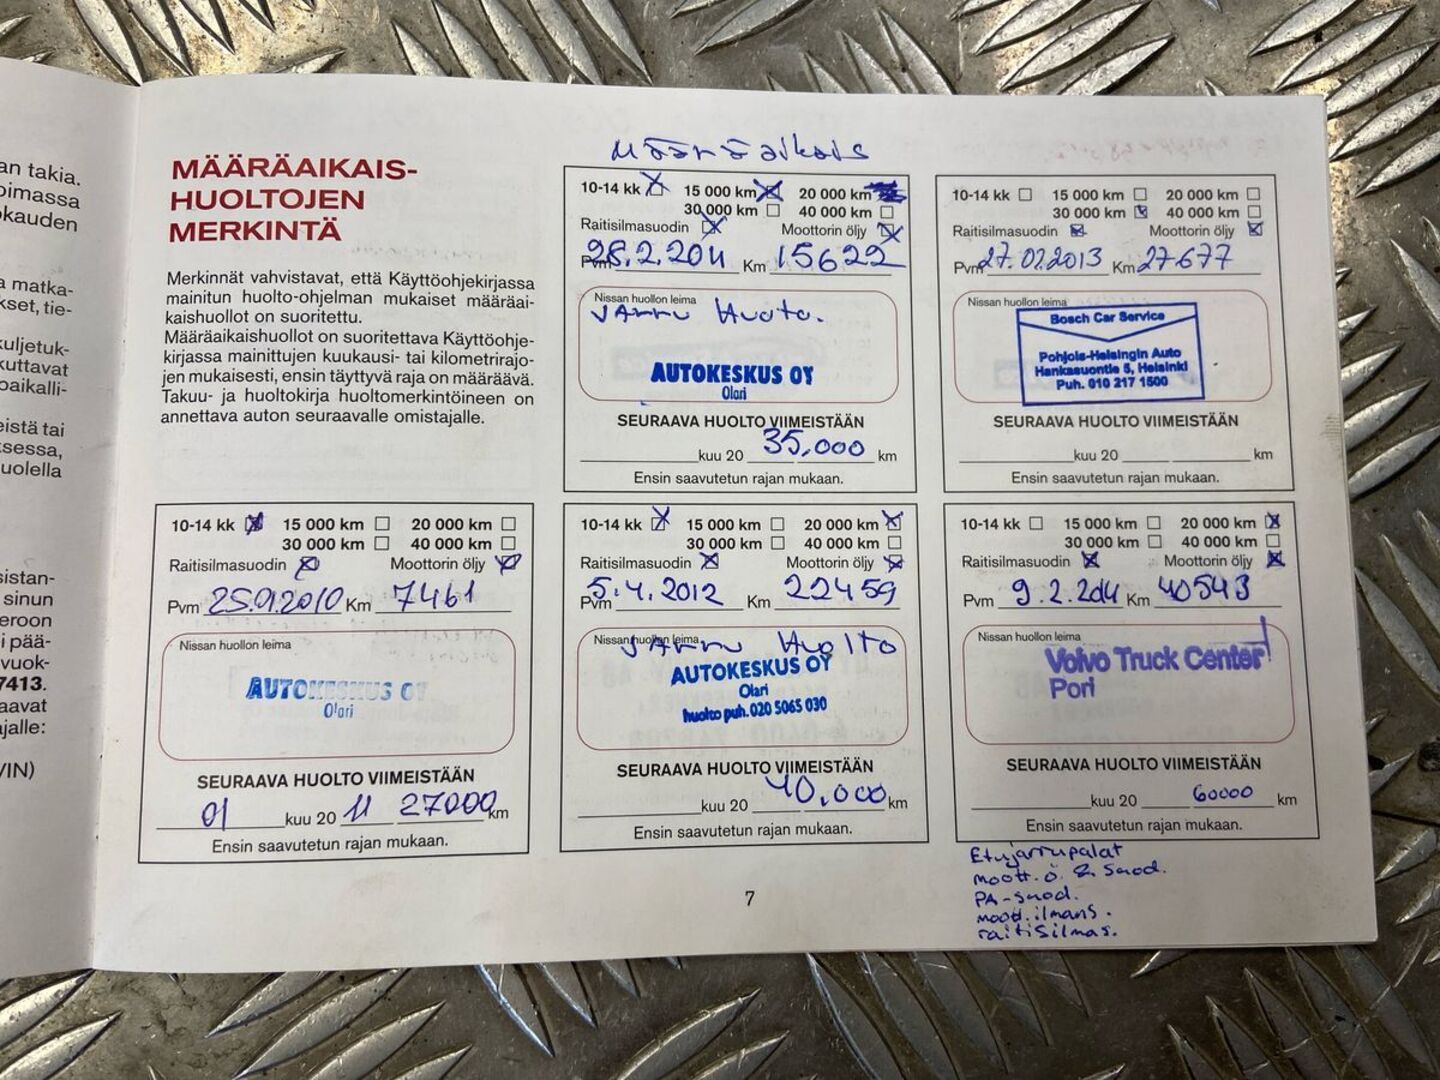 an takia.
oimassa
okauden
a matka-
kset, tie-
kuljetuk-
kuttavat
paikalli-
eistä tai
ksessa,
uolella
sistan-
sinun
eroon
i pää-
vuok-
7413.
aavat
ajalle:
VIN)
MÄÄRÄAIKAIS-
HUOLTOJEN
MERKINTÄ
Merkinnät vahvistavat, että Käyttöohjekirjassa
mainitun huolto-ohjelman mukaiset määräai-
kaishuollot on suoritettu.
Määräaikaishuollot on suoritettava Käyttöohje-
kirjassa mainittujen kuukausi- tai kilometrirajo-
jen mukaisesti, ensin täyttyvä raja on määräävä.
Takuu- ja huoltokirja huoltomerkintöineen on
annettava auton seuraavalle omistajalle.
Määräaikais
10-14 kk 15 000 km 20 000 km
30 000 km 40 000 km
Raitisilmasuodin Moottorin öljy
Pvm 28.2.2011 Km 15622
Nissan huollon leima
Jarru Huoto.
AUTOKESKUS OY
Olari
SEURAAVA HUOLTO VIIMEISTÄÄN
kuu 20 35.000 km
Ensin saavutetun rajan mukaan.
10-14 kk 15 000 km 20 000 km
30 000 km 40 000 km
Raitisilmasuodin Moottorin öljy
Pvm 27.02.2013 Km 27677
Nissan huollon leima
Bosch Car Service
Pohjois-Helsingin Auto
Hankasuontie 5, Helsinki
Puh. 010 217 1500
SEURAAVA HUOLTO VIIMEISTÄÄN
kuu 20 km
Ensin saavutetun rajan mukaan.
10-14 kk 15 000 km 20 000 km
30 000 km 40 000 km
Raitisilmasuodin Moottorin öljy
Pvm 25.01.2010 Km 7461
Nissan huollon leima
AUTOKESKUS OY
Olari
SEURAAVA HUOLTO VIIMEISTÄÄN
01 kuu 20 11 27000 km
Ensin saavutetun rajan mukaan.
10-14 kk 15 000 km 20 000 km
30 000 km 40 000 km
Raitisilmasuodin Moottorin öljy
Pvm 5.4.2012 Km 22459
Nissan huollon leima
Jarru Huolto
AUTOKESKUS OY
Olari
huolto puh. 020 5065 030
SEURAAVA HUOLTO VIIMEISTÄÄN
kuu 20 40.000 km
Ensin saavutetun rajan mukaan.
10-14 kk 15 000 km 20 000 km
30 000 km 40 000 km
Raitisilmasuodin Moottorin öljy
Pvm 9.2.2014 Km 40543
Nissan huollon leima
Volvo Truck Center
Pori
SEURAAVA HUOLTO VIIMEISTÄÄN
kuu 20 60000 km
Ensin saavutetun rajan mukaan.
Etujarrupalat
moott. ö. & Suod.
PA-suod.
moot.ilmans.
raitisilmas.
7